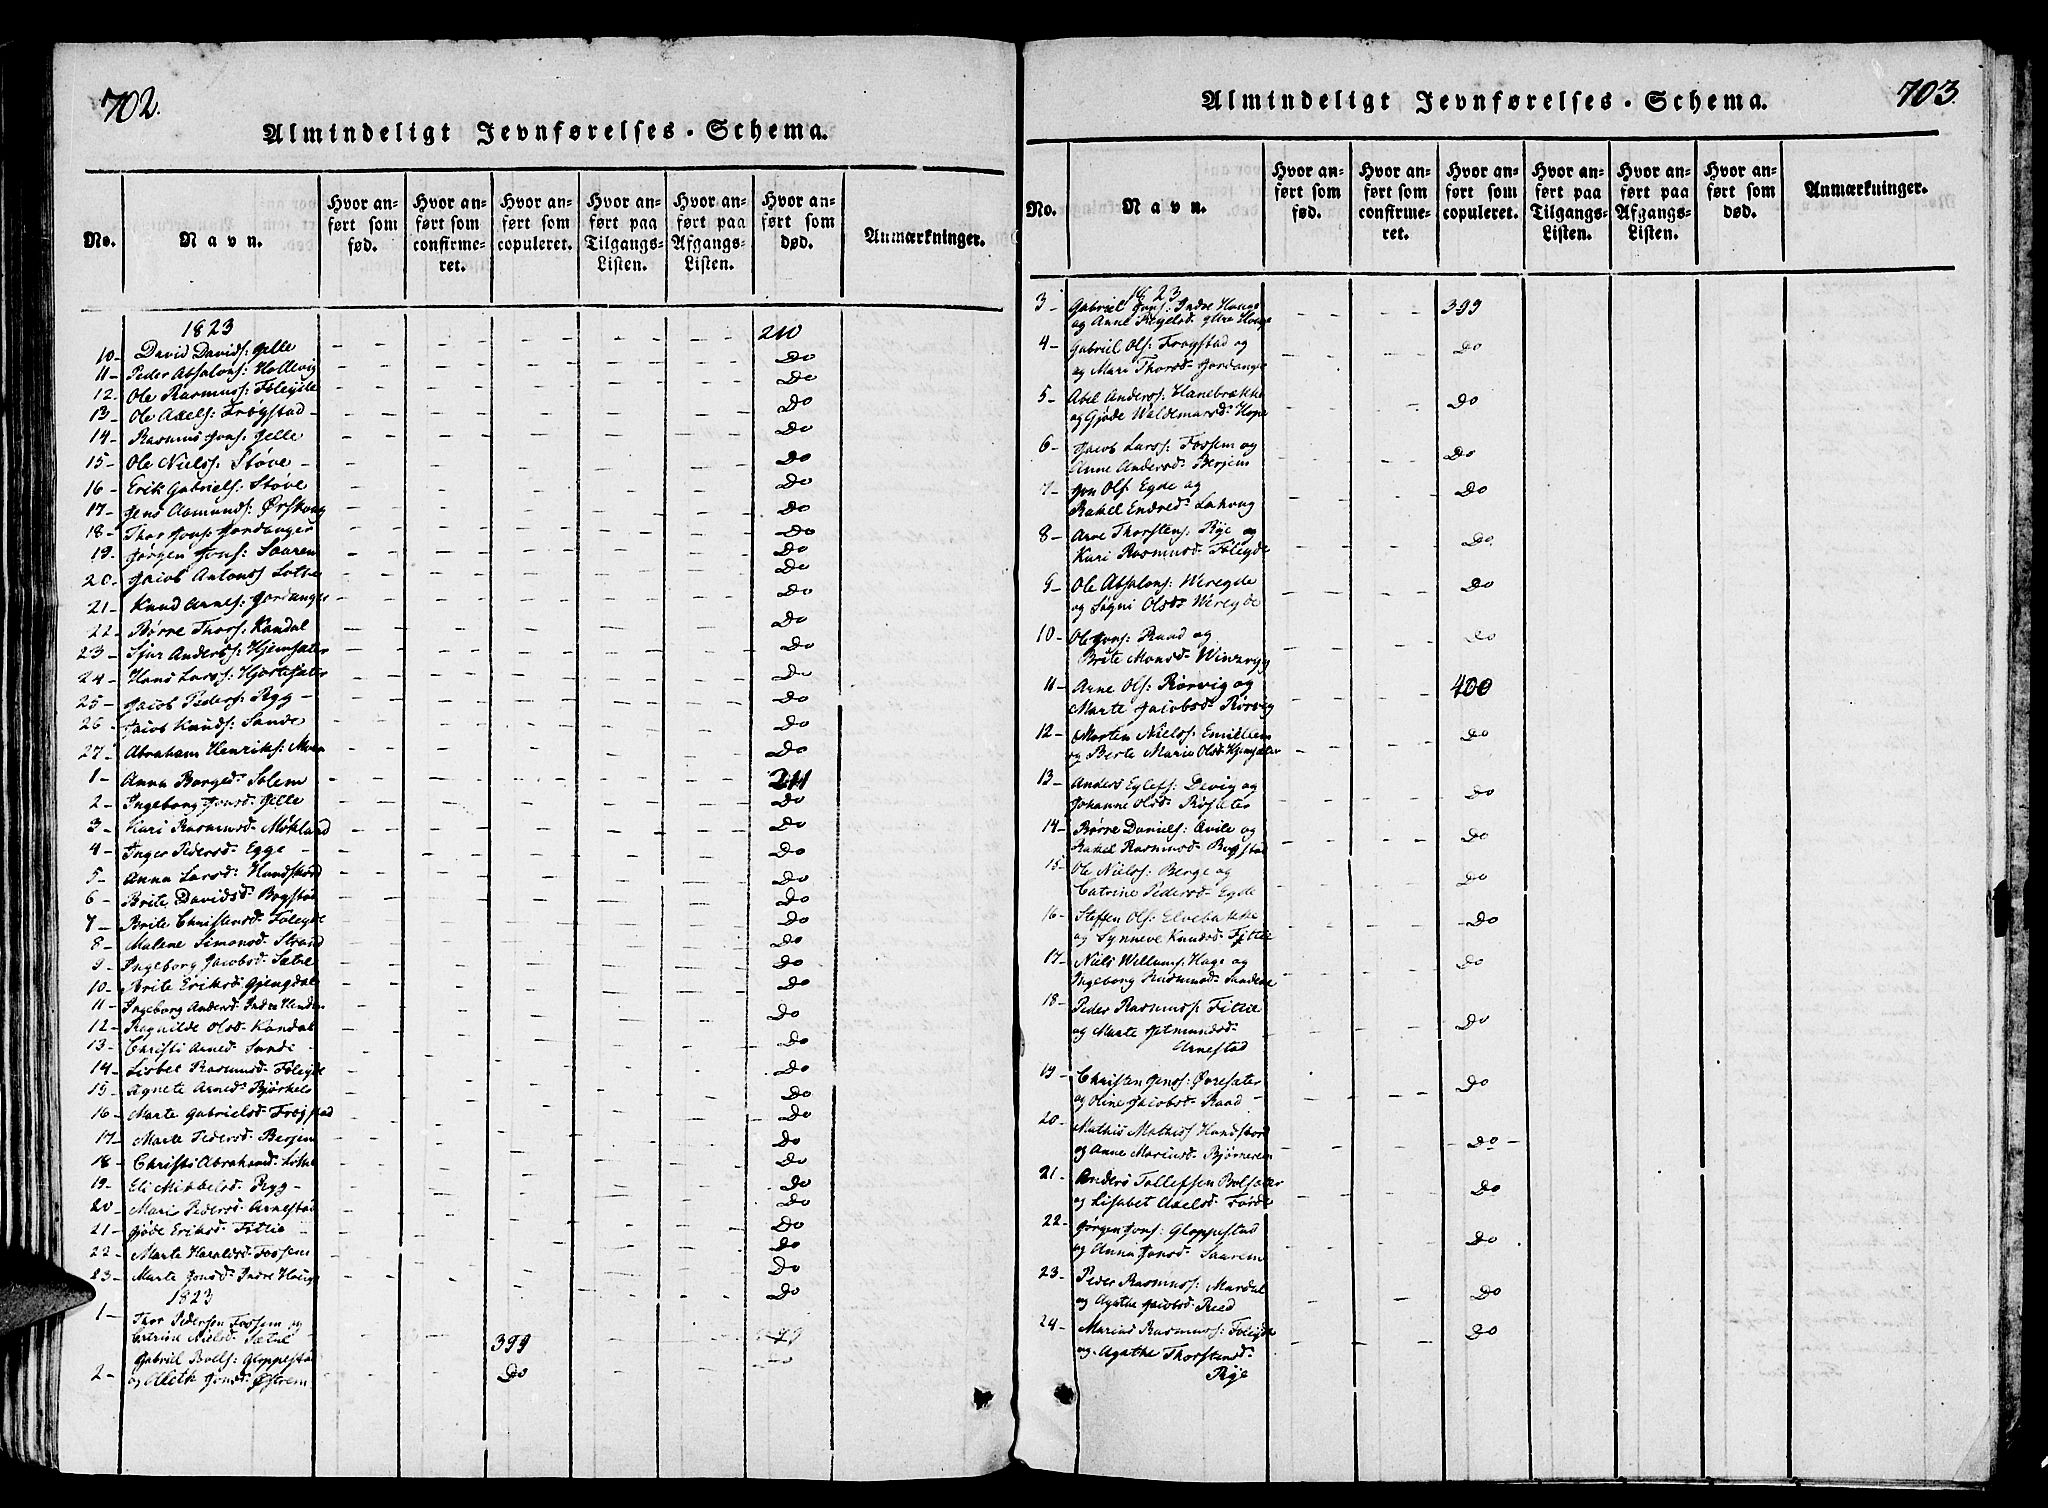 702.
Almindeligt Jevnførelses-Schema.
No.
Navn.
Hvor an-
ført som
fød.
Hvor an-
ført som
confirme-
ret.
Hvor an-
ført som
copuleret.
Hvor an-
ført paa
Tilgangs-
Listen.
Hvor an-
ført paa
Afgangs-
Listen.
Hvor an-
ført som
død.
Anmærkninger.
1823
10- David Davids: Gelle 210
11- Peder Absalons: Hollevig Do
12. Ole Rasmuss: Føleide Do
13- Ole Axels: Frøystad- Do
14- Rasmus Jons: Gelle Do
15- Ole Niels: Støve- Do
16- Erik Gabriels: Støve Do
17- Jens Aamunds: Ørskoug Do
18- Thor Jons: Jordanger Do
19- Jørgen Jons: Saarem Do
20- Jacob Antons: Lothe Do
21- Knud Arnes: Jordanger Do
22- Børre Thors: Kandal Do
23- Sjur Anderss: Hjemsæter Do
24- Hans Larss: Hjortesæter Do
25- Jacob Peders: Ryg- Do
26- Jacob Knuds: Sande Do
27- Abraham Henriks: Moen Do
1- Anna Børged: Solem 211
2- Ingeborg Jonsd: Gelle Do
3- Kari Rasmusd- Mokland Do
4- Inger Pedersd- Egge- Do
5- Anna Larsd: Hundskord Do
6- Brite Davidsd- Bogstad Do
7- Brite Christensd- Føleide Do
8- Malene Simonsd- Strand Do
9- Ingeborg Jacobsd- Sætre Do
10- Brite Eriksd- Gjengdal Do
11- Ingeborg Andersd- Indre Do
12- Ragnilde Olsd- Kandal Do
13- Christi Arned- Sande Do
14- Lisbet Rasmusd- Føleide Do
15- Agnete Arned- Bjørkelo Do
16- Marte Gabrielsd- Frøystad Do
17- Marte Pedersd- Berjem Do
18- Christi Abrahamsd- Lothe Do
19- Eli Mikkelsd- Ryg- Do
20- Mari Pedersd- Arnestad Do
21- Gjøde Eriksd- Fitje- Do
22- Marte Haraldsd- Fossem Do
23- Marte Jonsd- Indre Houge Do
1823
1- Thor Pedersen Fossem og
Catrine Nielsd- Sætre 399
2- Gabriel Boels: Gloppestad
og Alette Jonsd- Østrem Do
703.
Almindeligt Jevnførelses-Schema.
No.
Navn.
Hvor an-
ført som
fød.
Hvor an-
ført som
confirme-
ret.
Hvor an-
ført som
copuleret.
Hvor an-
ført paa
Tilgangs-
Listen.
Hvor an-
ført paa
Afgangs-
Listen.
Hvor an-
ført som
død.
Anmærkninger.
1823
3- Gabriel Jons: Indre Houge 399
og Anne Ytre Houge
4- Gabriel Ols: Frøystad og Do
og Mari Thorsd- Jordanger
5- Abel Anderss: Hanebrække Do
og Gjøde Waldemarsd- Hope
6- Jacob Larss: Fossem og Do
Anne Andersd- Berjem
7- Jon Ols: Egde og Do
Rakel Endred-
8- Arve Thorstens: Rye og Do
Kari Rasmusd- Føleide
9- Ole Absalons: Weregde Do
og Søgni Olsd- Weregde
10- Ole Jons: Raad og Do
Brite Monsd- Winsryg
11- Arne Ols: Rørvig og 400
Marte Jacobsd- Rørvig
12- Morten Niels: Do
og Berte Marie Olsd- Hjemsæter
13- Anders Eylefs: Devig og Do
Johanne Olsd- Røsæter
14- Børre Daniels: og Do
Rakel Rasmusd- Bogstad
15- Ole Niels: Berge og Do
Catrine Pedersd- Egde
16- Steffen Ols: Elvebakke Do
og Synneve Knudsd- Fitje
17- Niels Wellums: Hage og Do
Ingeborg Rasmusd- Sandene
18- Peder Rasmuss: Fitje Do
og Marte
Arnestad
19- Christen Jens: Øvresæter Do
og Oline Jacobsd- Raad-
20- Mathis Mathiss: Hundskord Do-
og Anne Mariusd- Bjørnereim
21- Anders Tollefsen Bolsæter Do
og Lisabet Axelsd- Førde
22- Jørgen Jons: Gloppestad Do
og Anna Jonsd- Saarem
23- Peder Rasmuss: Mardal Do
og Agathe Jacobsd- Reed
24- Marius Rasmuss: Føleide Do
og Agathe Thorstensd-
Rye